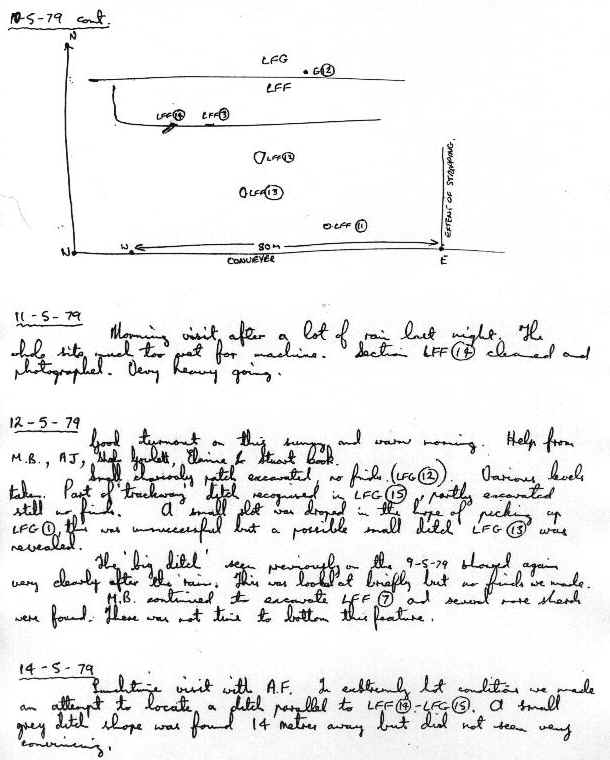 10-5-79 cont.
N
LFG
G⑫
LFF
LFF⑭ LFF③
LFF⑫
LFF⑬
LFF⑪
EXTENT OF STRIPPING.
N W 80M E
CONVEYER
11-5-79
Morning visit after a lot of rain last night. The
whole site much too wet for machine. Section LFF⑭ cleaned and
photographed. Very heavy going.
12-5-79
Good turnout on this sunny and warm morning. Help from
M.B., AJ, Elaine & Stuart Cook.
Small charcoaly patch excavated, no finds. (LFG⑫). Various levels
taken. Part of trackway ditch recognised in LFG⑮, partly excavated
still no finds. A small slot was droped in the hope of picking up
LFG①, this was unsuccessful but a possible small ditch LFG⑬ was
revealed.
The 'big ditch' seen previously on the 9-5-79 showed again
very clearly after the rain. This was looked at briefly but no finds we made.
M.B. continued to excavate LFF⑦ and several more sherds
were found. There was not time to bottom this feature.
14-5-79
Lunchtime visit with A.F. In extremly hot conditions we made
an attempt to locate a ditch parallel to LFF⑭-LFG⑮. A small
grey ditch shape was found 14 metres away but did not seem very
convincing.